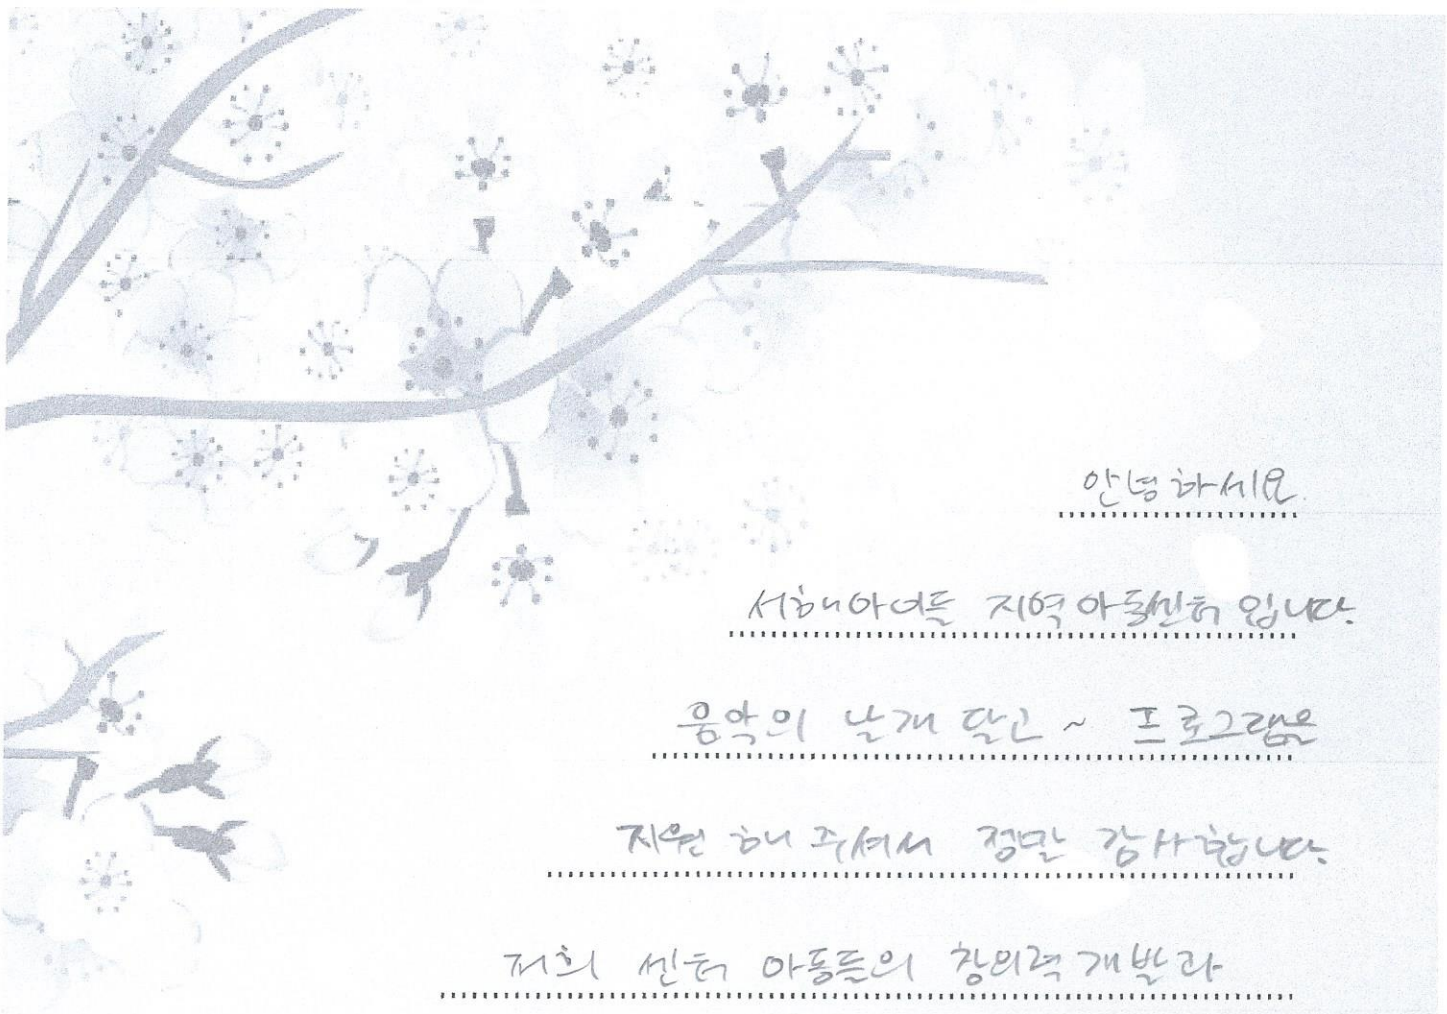 안녕하세요.
서해아이들 지역아동센터 입니다.
음악의 날개 달고 ~ 프로그램을
지원 해 주셔서 정말 감사합니다.
저희 센터 아동들의 창의력 개발과